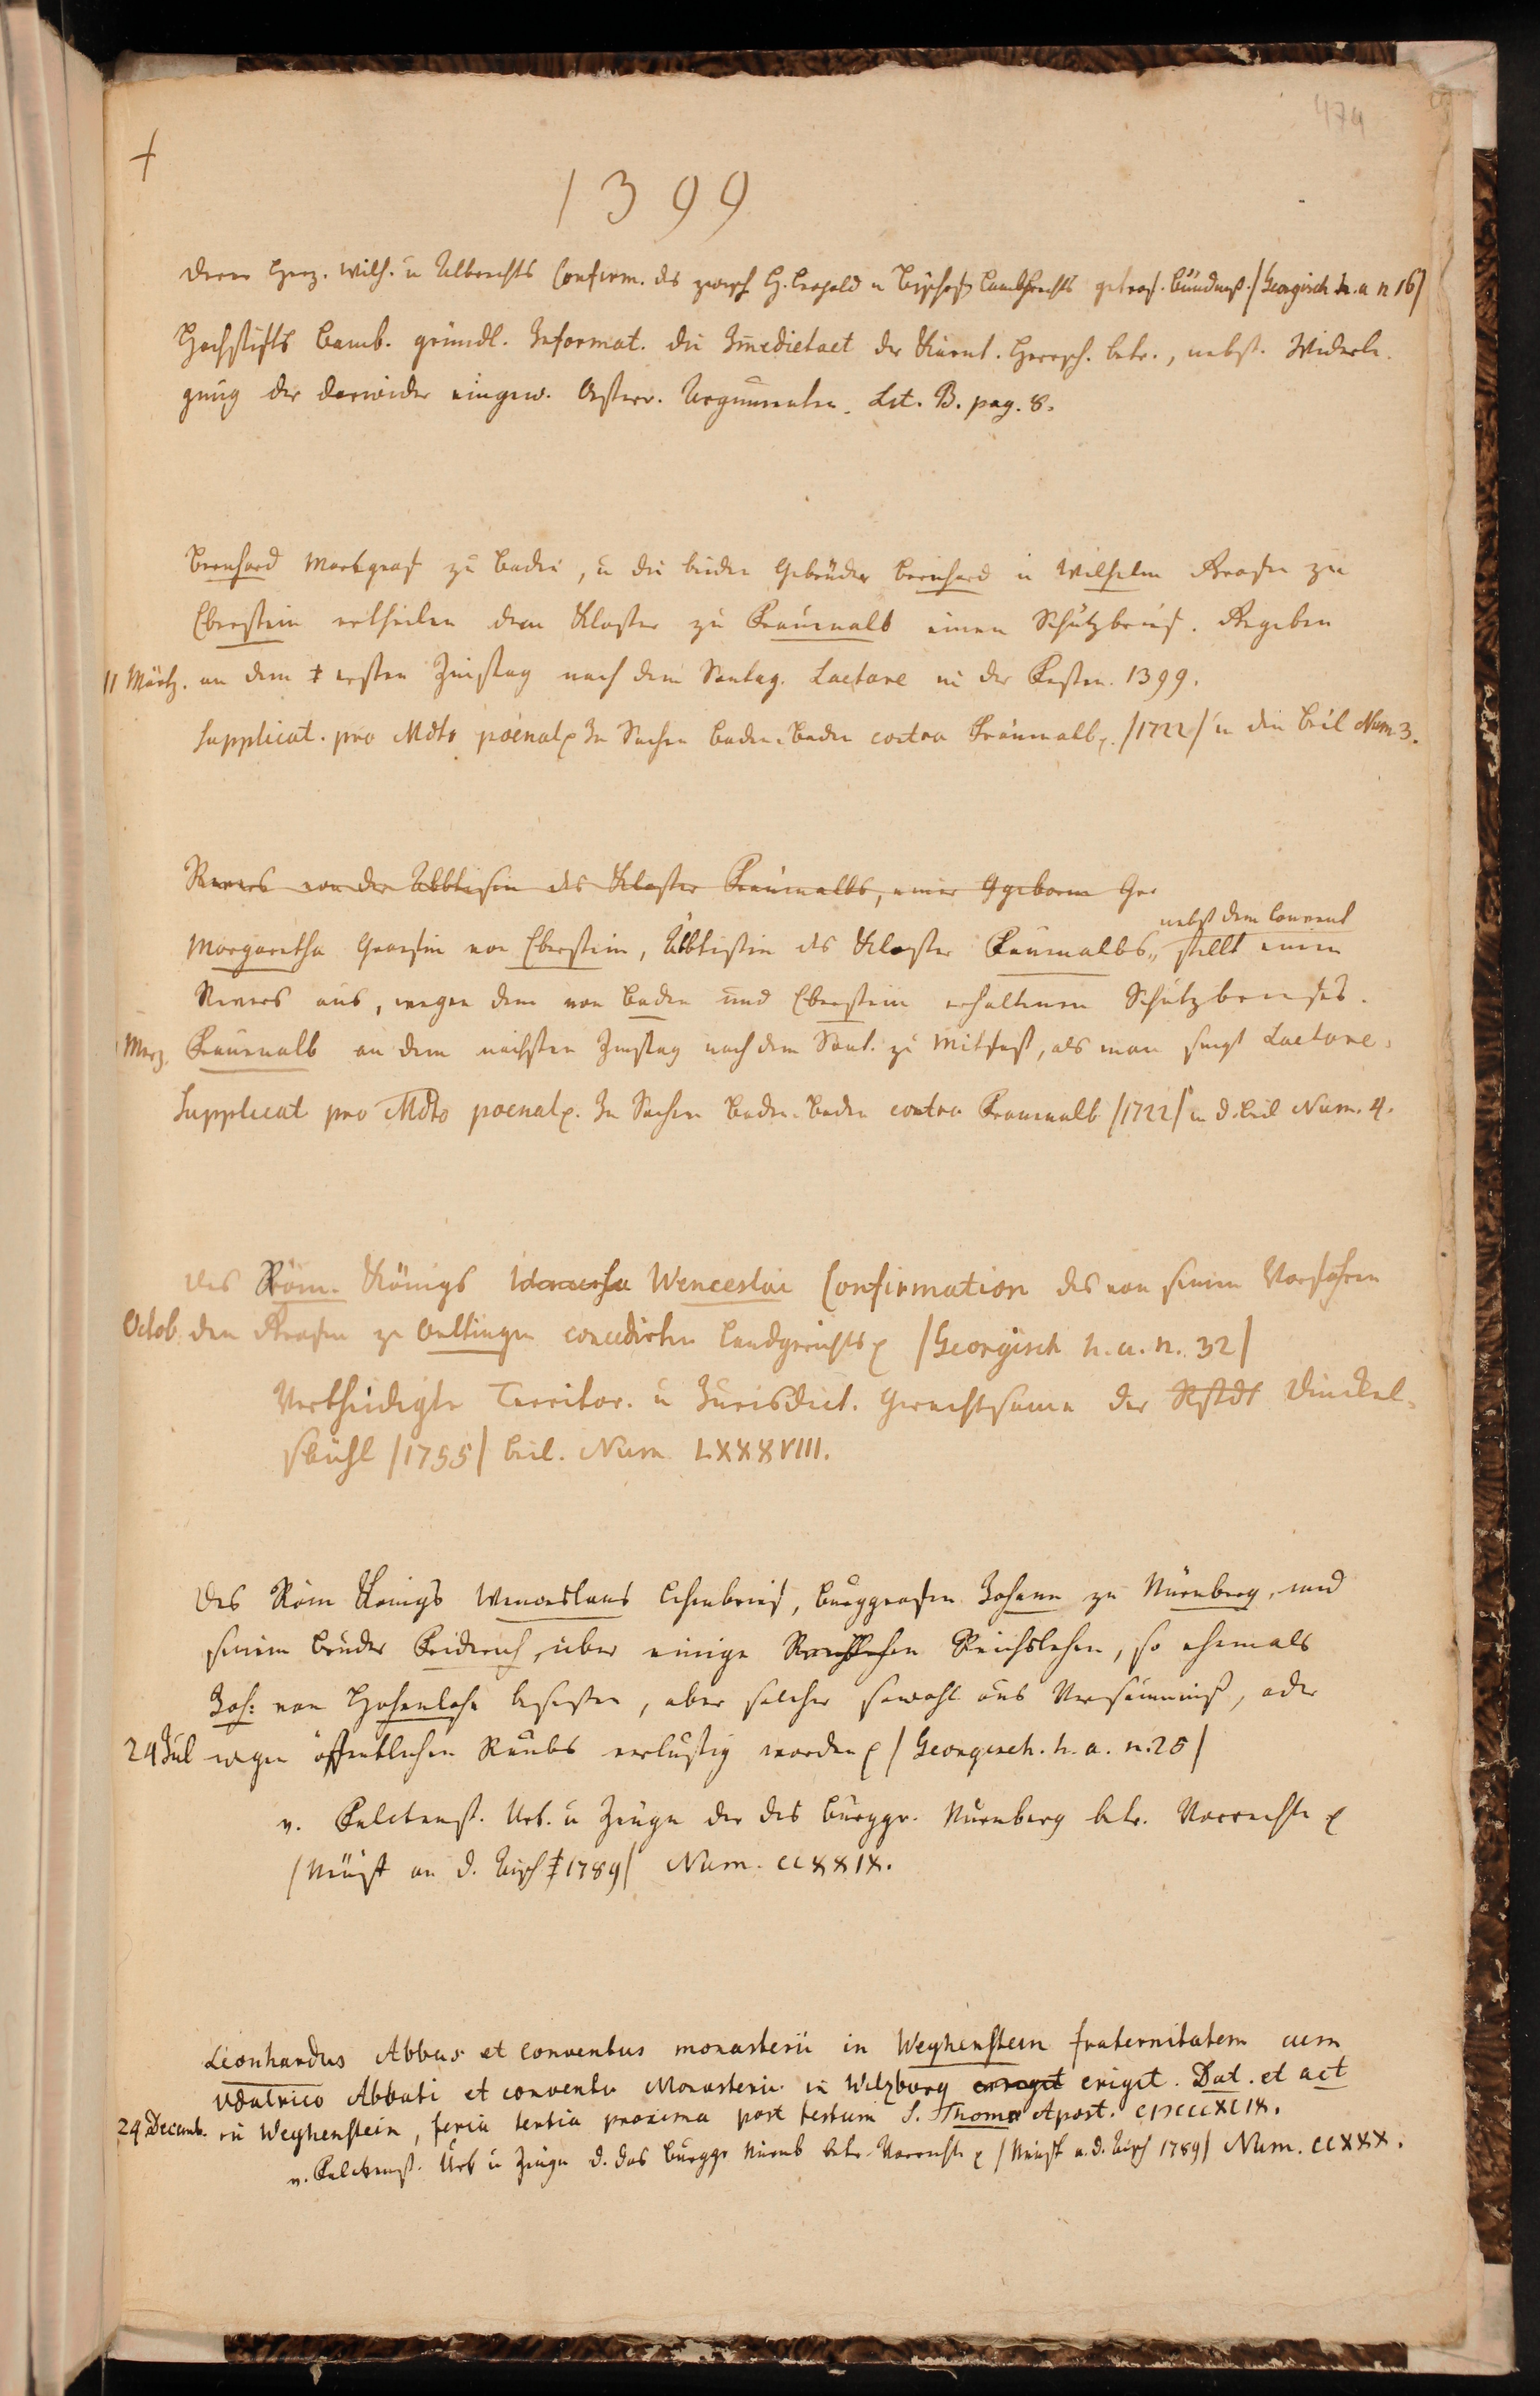 474
+
1399
derer Herz. Wilh. u Albrechts Confirm. des zwisch H. Leopold u Bischofs Lambrechts getrof. Bündniß. /Georgisch h. a n 16/
Hochstifts Bamb. gründl. Informat. die Im̄edietaet der Kärnt. Herrsch. betr., nebst. Widerle-
gung der darwider eingew. Österr. Argumenten. Lit. B. pag. 8.
Bernhard Markgraf zu Baden, u die beiden Gebrüder Bernhard u Wilhelm Grafen zu
Eberstein ertheilen dem Kloster zu Frauenalb einen Schutzbrief. Gegeben
11 Märtz. an dem ersten Zinstag nach dem Sontag. Laetare in der Fasten. 1399.
Supplicat. pro Mdto poenal. In Sachen Baden-Baden contra Frauenalb. /1722/ u den Beil Num 3.
Revers von der Abbtissin des Kloster Frauenalbs, einer Ggeborne Gr
nebst dem Convent
Margaretha Graefin von Eberstein, Äbbtissin des Kloster Frauenalbs, stellt einen
Revers aus, wegen dem von Baden und Eberstein erhaltenen Schutzbriefes.
Merz. Frauenalb an dem nechsten Zinstag nach dem Sont. zu Mitfast, als man singt Laetare.
Supplicat pro Mdto poenal. In Sachen Baden-Baden contra Frauenalb /1722/ u d. Beil Num. 4.
Des Röm. Königs Wenceslai Confirmation des von seinen Vorfahren
Octob. den Grafen zu Oettingen concedirten Landgerichts /Georgisch h. a. n. 32/
Vertheidigte Territor. u Jurisdict. Gerechtsame der RStdt Dinckel-
sbühl /1755/ Beil. Num LXXXVIII.
Des Röm Königs Wenceslaus Lehenbrief, Burggrafen Johann zu Nürnberg, und
seinem Bruder Fridrich, über einige Reichslehen Reichslehen, so ehemals
Joh: von Hohenlohe besessen, aber solcher sowohl aus Versäumniß, oder
24 Jul wegen öffentlichen Raubs verlustig worden /Georgisch. h. a. n. 25/
v. Falckenst. Urk. u Zeugn der des Burggr. Nürnberg betr. Vorrechte
/Neust an d. Aisch 1789/ Num. CCXXIX.
Leonhardus Abbas et conventus monasterii in Weyhenstein fraternitatem cum
Vdalrico Abbati et conventu Monasterii in Wilzburg erriget eriget. Dat. et act
24 Decemb. in Weyhenstein, feria tertia proxima post festum S. Thomae Apost. CIↃCCCXCIX.
v. Falckenst. Urk u Zeugn d. das Burggr Nürnb betr. Vorrecht /Neust a. d. Aisch 1789/ Num. CCXXX.